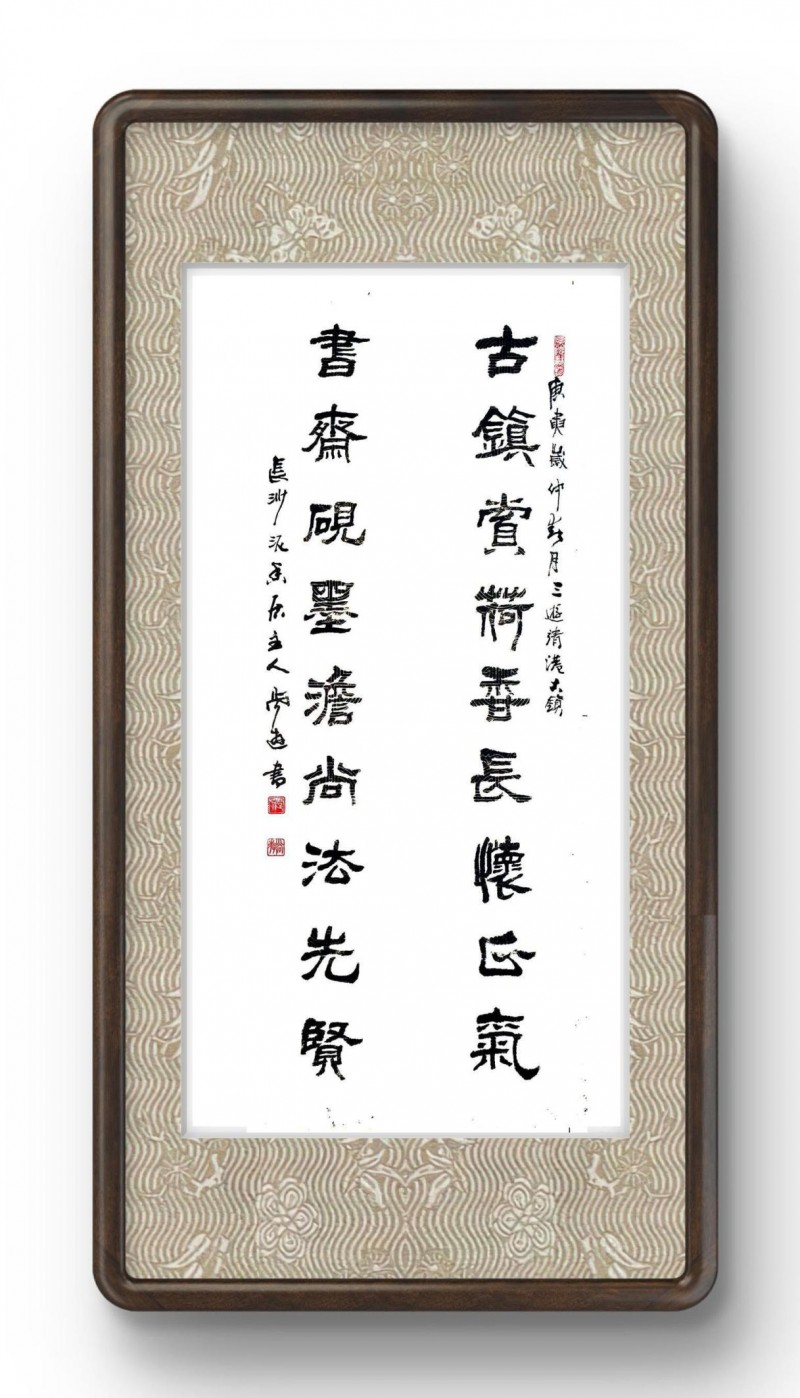 庚寅歲仲春月三遊靖港古鎮
古鎮賞荷香長懷正氣
書齋硯墨澹尚法先賢
長沙 居主人 書